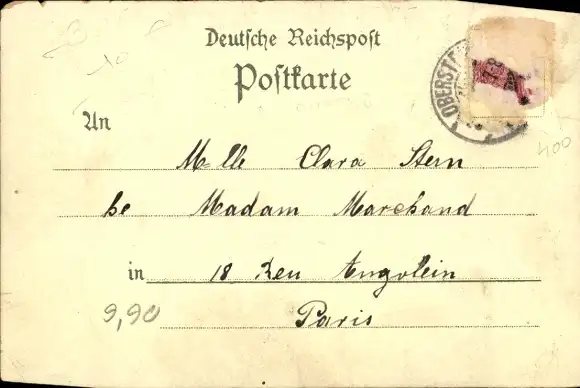 Deutsche Reichspost
Postkarte
An
Mlle Clara Stern
be Madam Marchand
in 18 Reu Angolein
Paris
9,90
400